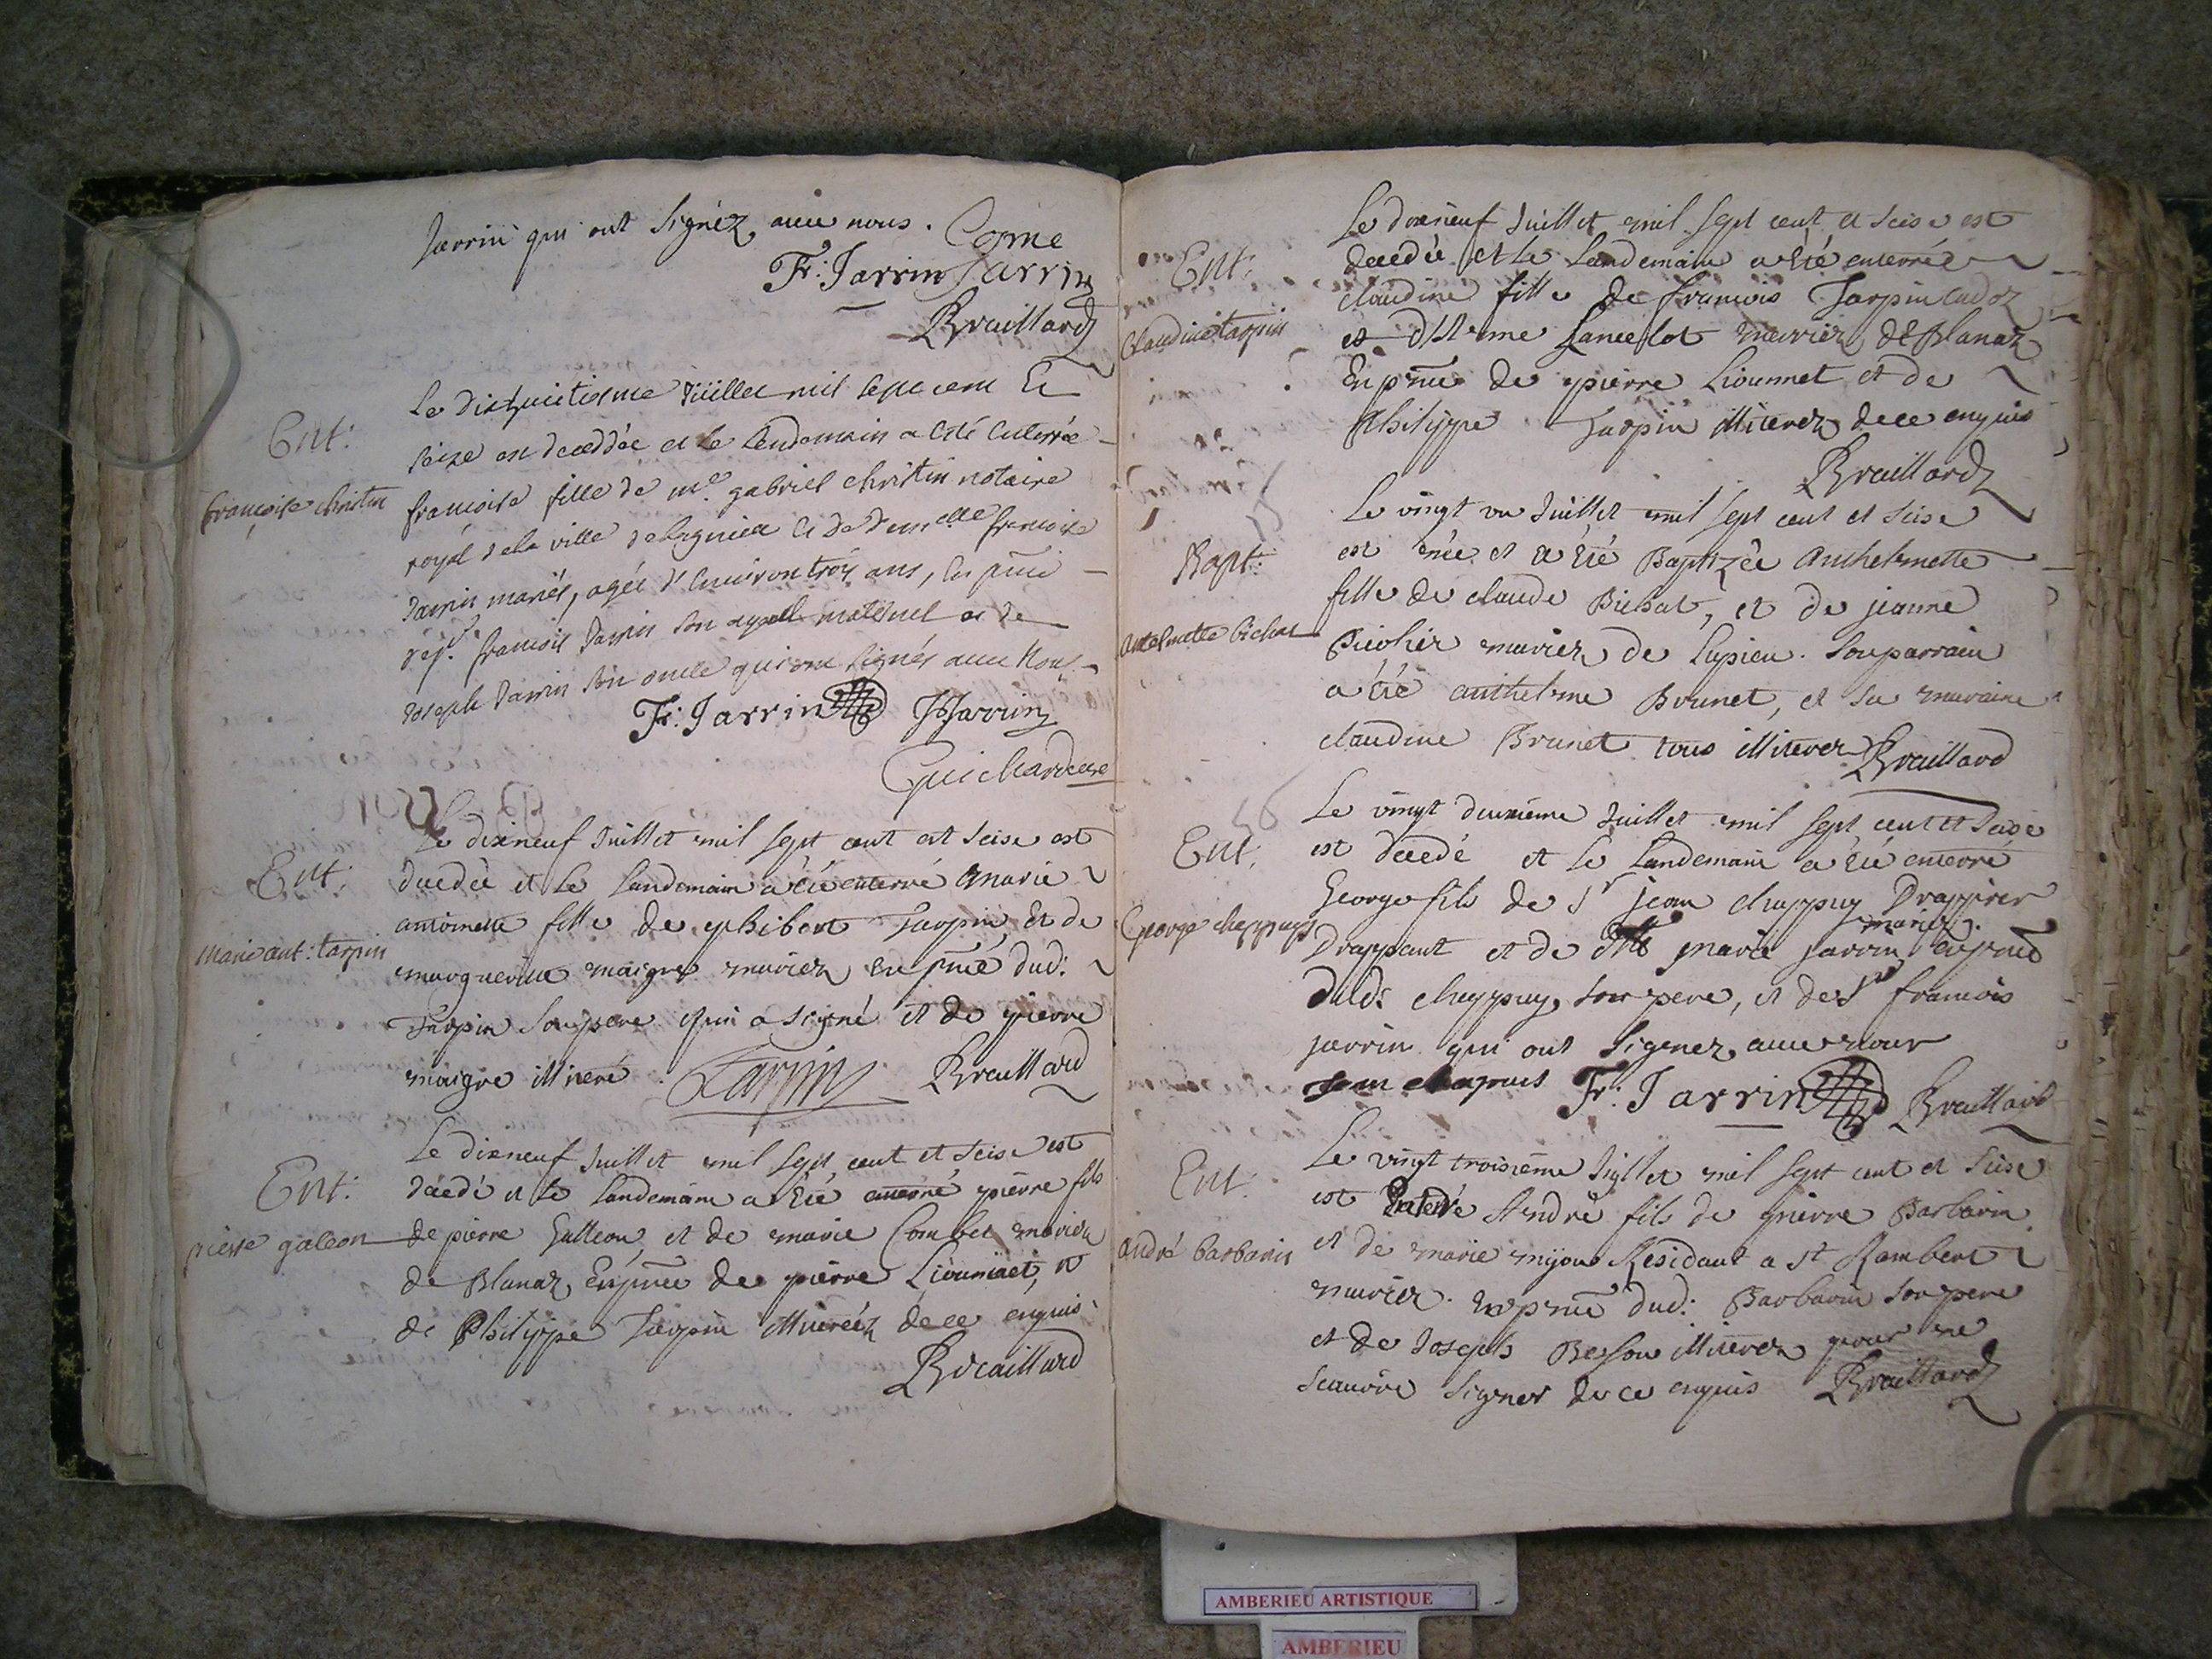 Jarrin qui ont signéz avec nous. Come
Fr: Jarrin Jarrin
Bvaillard
Ent:
françoise christin
Le dixhuitiesme Juillet mil sept cent Et
seize est deceddée et le lendemain a esté enterrée
francoise fille de me. gabriel christin notaire
royal de la ville de lagnieu et de demelle francoise
Jarrin mariés, agée d'environ trois ans, en pnce
francois Jarrin son ayeul maternel et de
Joseph Jarrin son oncle qui ont signés avec Nous
Fr: Jarrin JJarrin
Guichard cure
Ent:
Marie ant: tarpin
Le dixneuf Juillet mil sept cent et seise est
decedée et le landemain a été enterré marie
antoinette fille de phibert Tarpin, Et de
marguerite maigre mariez en pnce dud:
Tarpin son pere qui a signé et de pierre
maigre illiteré. Tarpin Bvaillard
Ent:
pierre galeon
Le dixneuf Juillet mil sept cent et seise est
décedé et le landemain a été enterré pierre fils
de pierre Galleon, et de marie Combet mariez
de Blanaz, En pnce de pierre Liounnet, et
de Philippe Tarpin illiteréz de ce enquis
Bvaillard
Ent:
Claudine tarpin
Le dixneuf Juillet mil sept cent et seise est
decedée et le landemain a été enterrée
claudine fille de francois Tarpin cadoz
et Lancelot mariez de Blanaz
En pnce de pierre Liounnet et de
Philippe Tarpin illiterez de ce enquis
Bvaillard
Bapt:
antelmette bichat
Le vingt un Juillet mil sept cent et seise
est née et a été Baptizée Anthelmette
fille de claude Bichat, et de jeanne
mariez de Lupieu. Son parrain
a été anthelme Brunet, et sa maraine
claudine Brunet tous illiterez Bvaillard
Ent:
George chappuys
Le vingt deuxieme Juillet mil sept cent et seise
est décedé et le landemain a été enterré
George fils de Sr jean chappuy Drappier
Drappant et de Dlle marie jarrin mariez. en pnce
dud: chappuy son pere, et de Sr francois
jarrin qui ont signez avec nous
Jean chapuis Fr: Jarrin Bvaillard
Ent:
andré barbarin
Le vingt troisiéme Juillet mil sept cent et seise
est André fils de pierre Barbarin
et de marie mijon Residant a St Rambert
mariez. en pnce dud: Barbarin son pere
et de Joseph Besson illiterez pour ne
scavoir signer de ce enquis Bvaillard
AMBERIEU ARTISTIQUE
AMBERIEU